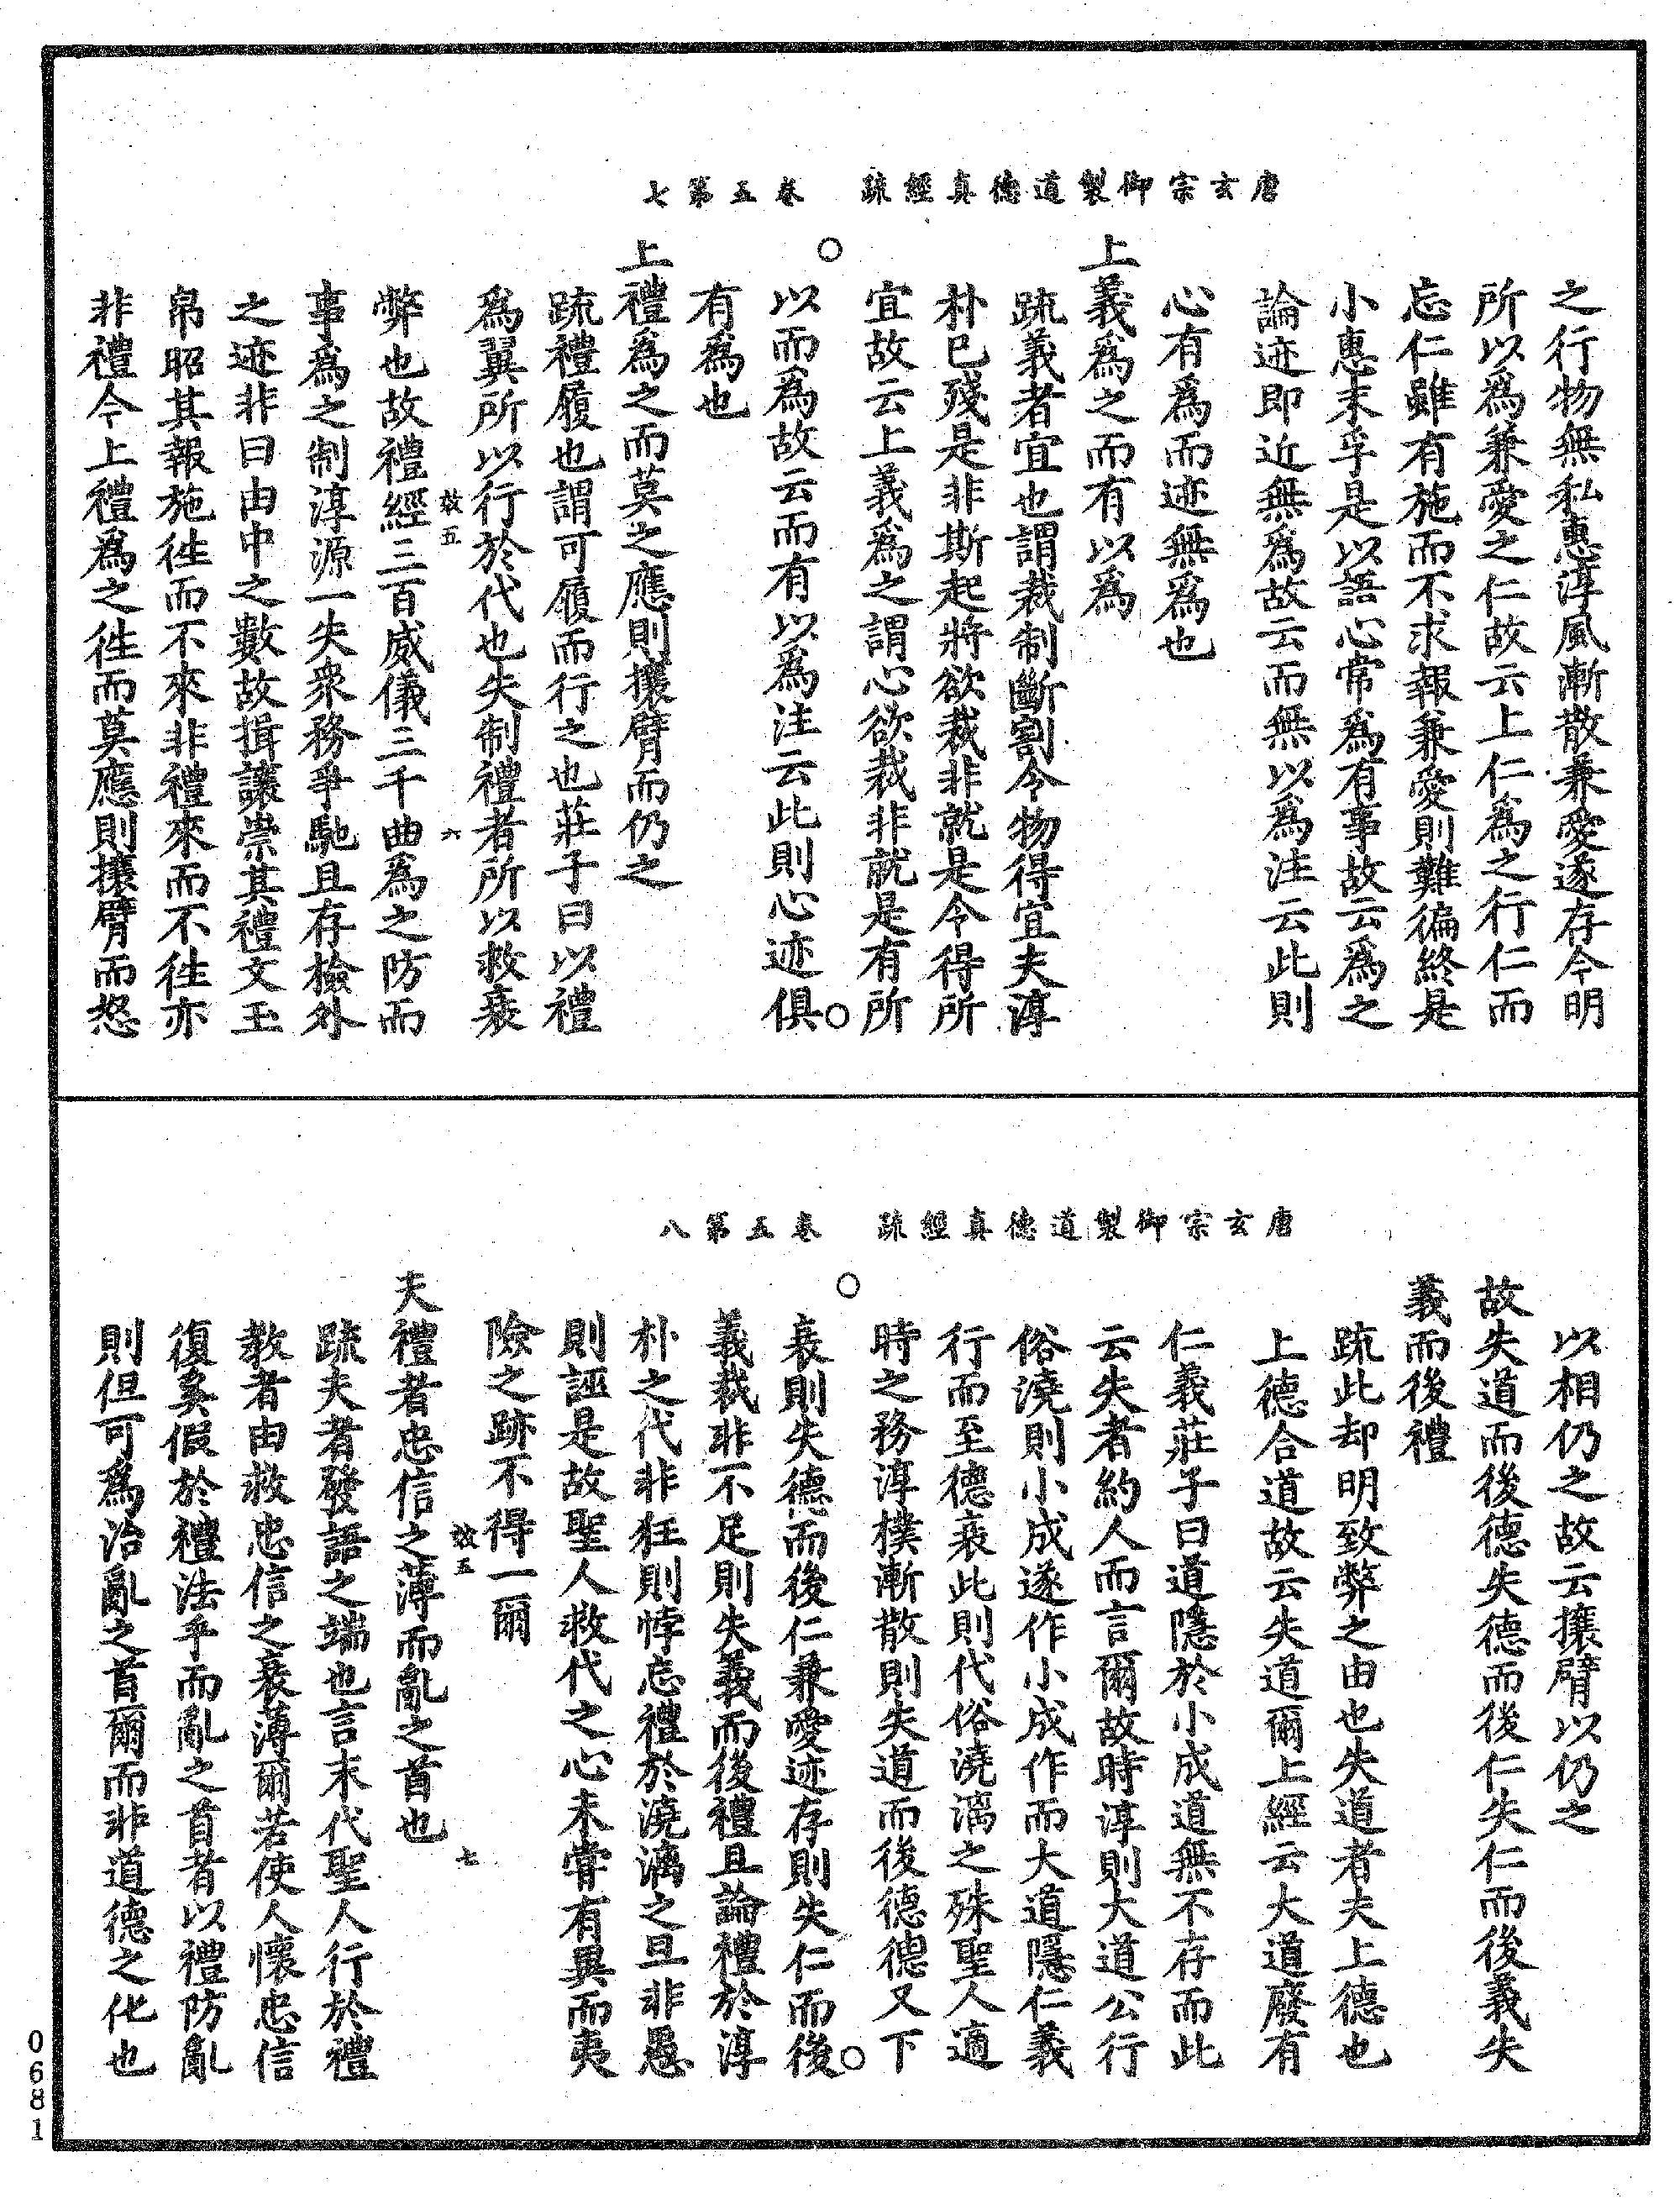 唐玄宗御製道德真經疏　卷五第七
之行物無私惠淳風漸散兼愛遂存今明
所以爲兼愛之仁故云上仁爲之行仁而
忘仁雖有施而不求報兼愛則難徧終是
小惠未孚是以語心常爲有事故云爲之
論迹即近無爲故云而無以爲注云此則
心有爲而迹無爲也
上義爲之而有以爲
疏義者宜也謂裁制斷割令物得宜夫淳
朴已殘是非斯起將欲裁非就是令得所
宜故云上義爲之謂心欲裁非就是有所
以而爲故云而有以爲注云此則心迹俱
有爲也
上禮爲之而莫之應則攘臂而仍之
疏禮履也謂可履而行之也莊子曰以禮
爲翼所以行於代也失制禮者所以救衰
弊也故禮經三百威儀三千曲爲之防而
效五　六
事事爲之制淳源一失衆務爭馳且存檢外
之迹非曰由中之數故揖讓崇其禮文玉
帛昭其報施徃而不來非禮來而不徃亦
非禮今上禮爲之徃而莫應則攘臂而怒
唐玄宗御製道德真經疏　卷五第八
以相仍之故云攘臂以仍之
故失道而後德失德而後仁失仁而後義失
義而後禮
疏此却明致弊之由也失道者夫上德也
上德合道故云失道爾上經云大道廢有
仁義莊子曰道隱於小成道無不存而此
云失者約人而言爾故時淳則大道公行
俗澆則小成遂作小成作而大道隱仁義
行而至德衰此則代俗澆漓之殊聖人適
時之務淳樸漸散則失道而後德德又下
衰則失德而後仁兼愛迹存則失仁而後
義裁非不足則失義而後禮且論禮於淳
朴之代非狂則悖忘禮於澆漓之旦非愚
則誣是故聖人救代之心未嘗有異而夷
險之跡不得一爾
夫禮者忠信之薄而亂之首也
效五　七
疏夫者發語之端也言末代聖人行於禮
教者由救忠信之衰薄爾若使人懷忠信
復奚假於禮法乎而亂之首者以禮防亂
則但可爲治亂之首爾而非道德之化也
0681